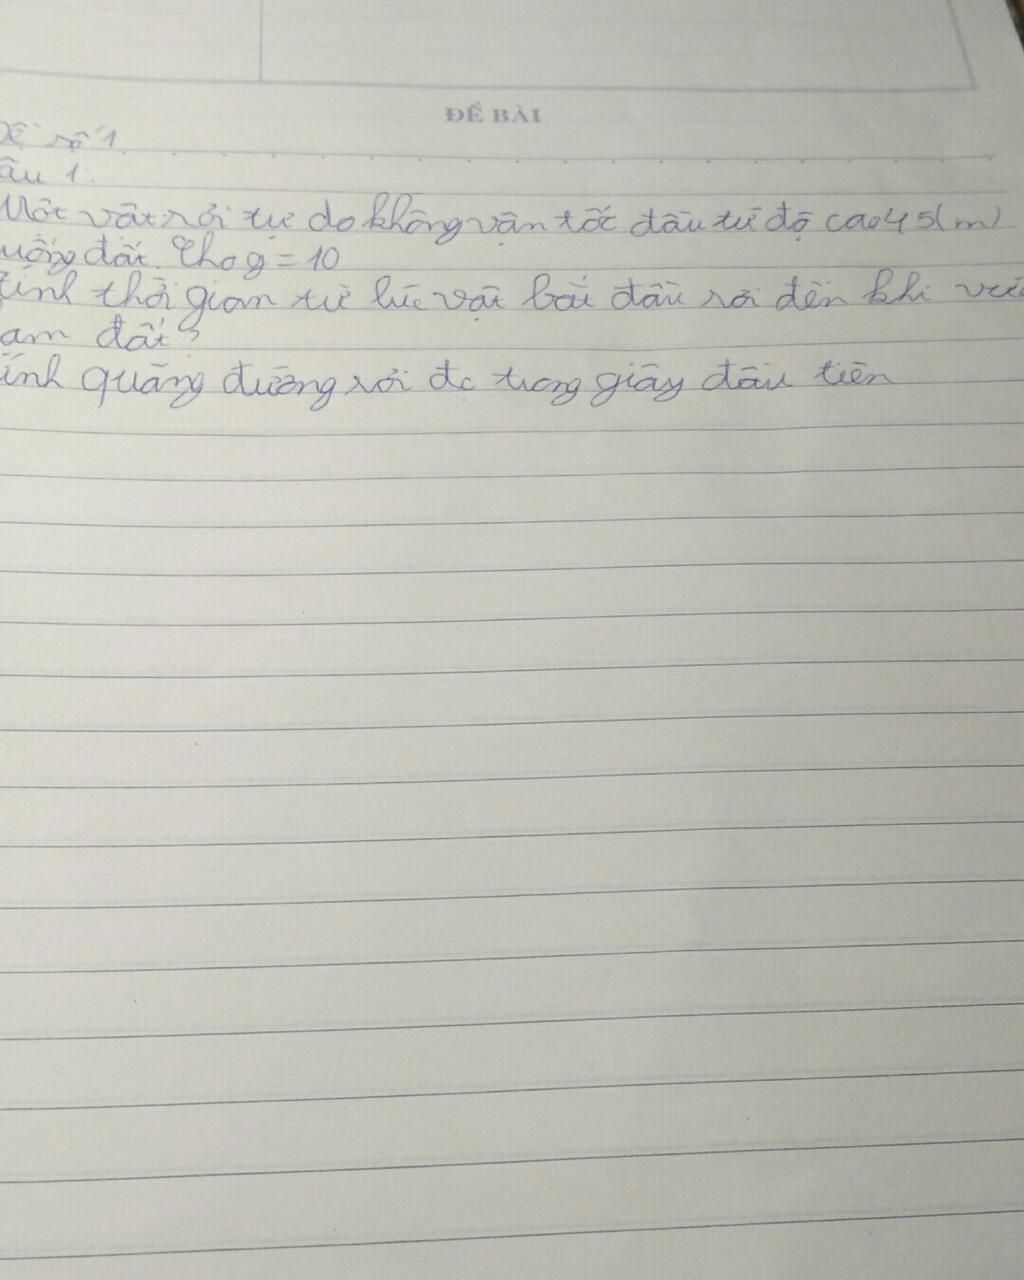 ĐỀ BÀI
Đề số 1
âu 1.
Một vật rơi tự do không vận tốc đầu từ độ cao 45(m)
uống đất. Cho g = 10
Tính thời gian từ lúc vật bắt đầu rơi đến khi vừa
ạm đất?
ính quãng đường rơi đc trong giây đầu tiên